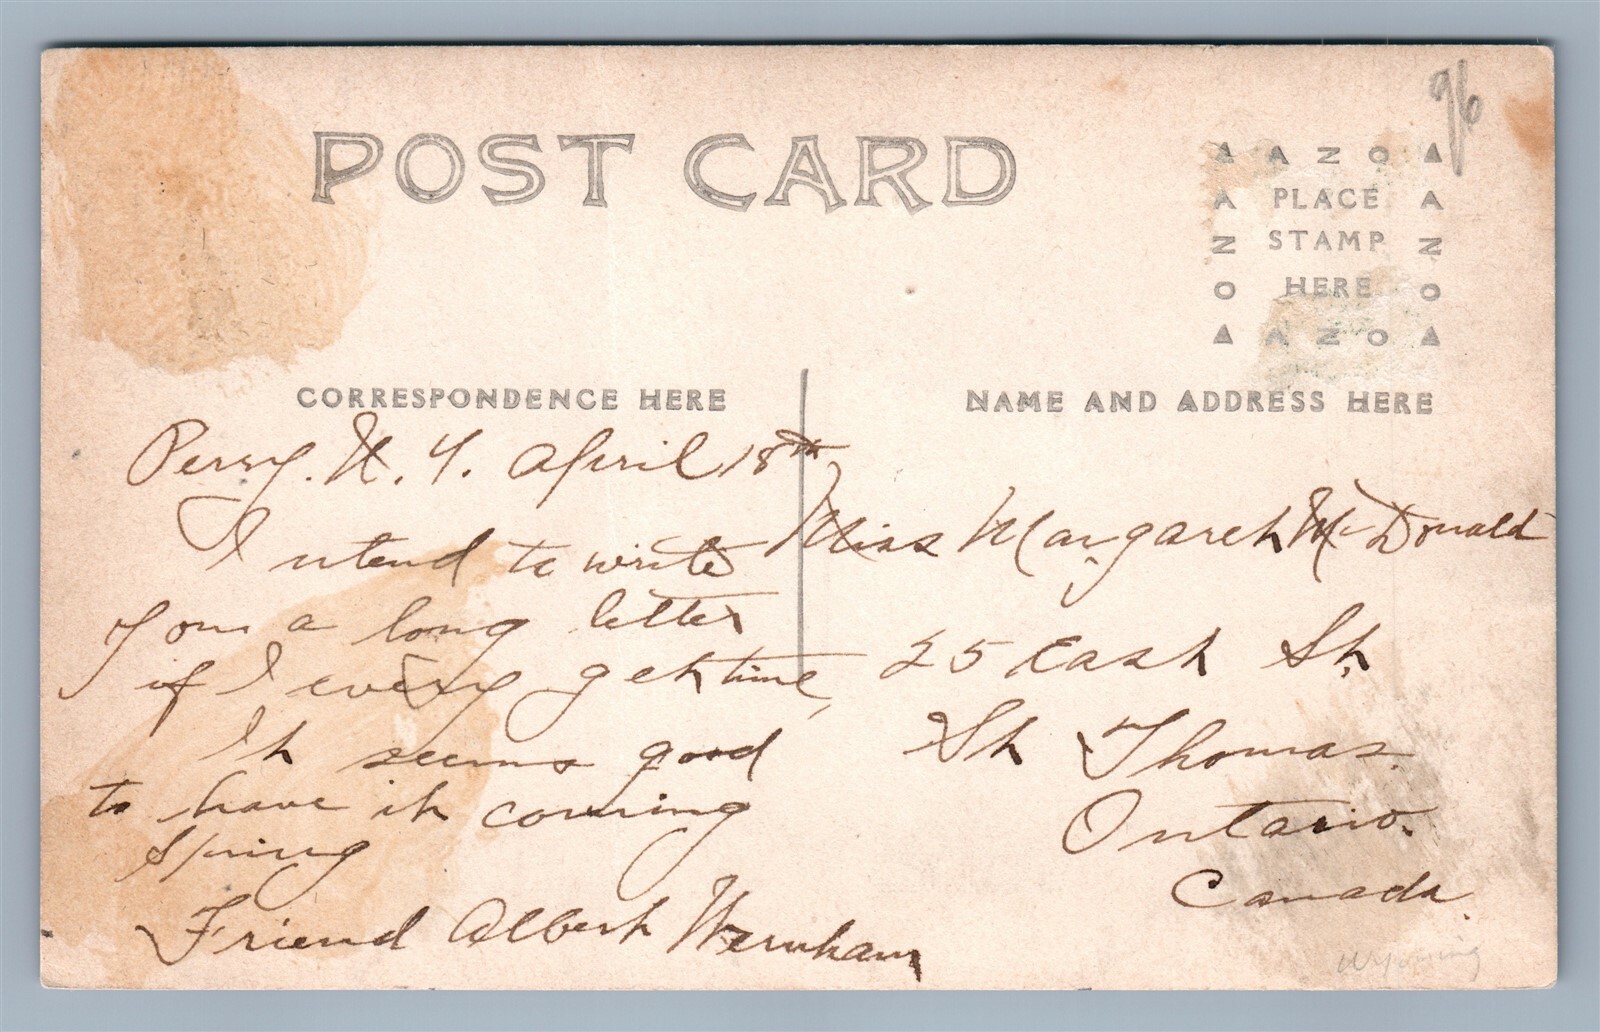 POST CARD
96
▲ A Z O ▲
A PLACE A
N STAMP N
O HERE O
▲ A Z O ▲
CORRESPONDENCE HERE
NAME AND ADDRESS HERE
Perry. N. Y. April 18th,
I ntend to write
You a long letter
if I every get time,
It seems good
to have it coming
Spring
Friend Albert Wernham
Miss Margaret McDonald
25 East St.
St Thomas.
Ontario.
Canada.
Wyoming